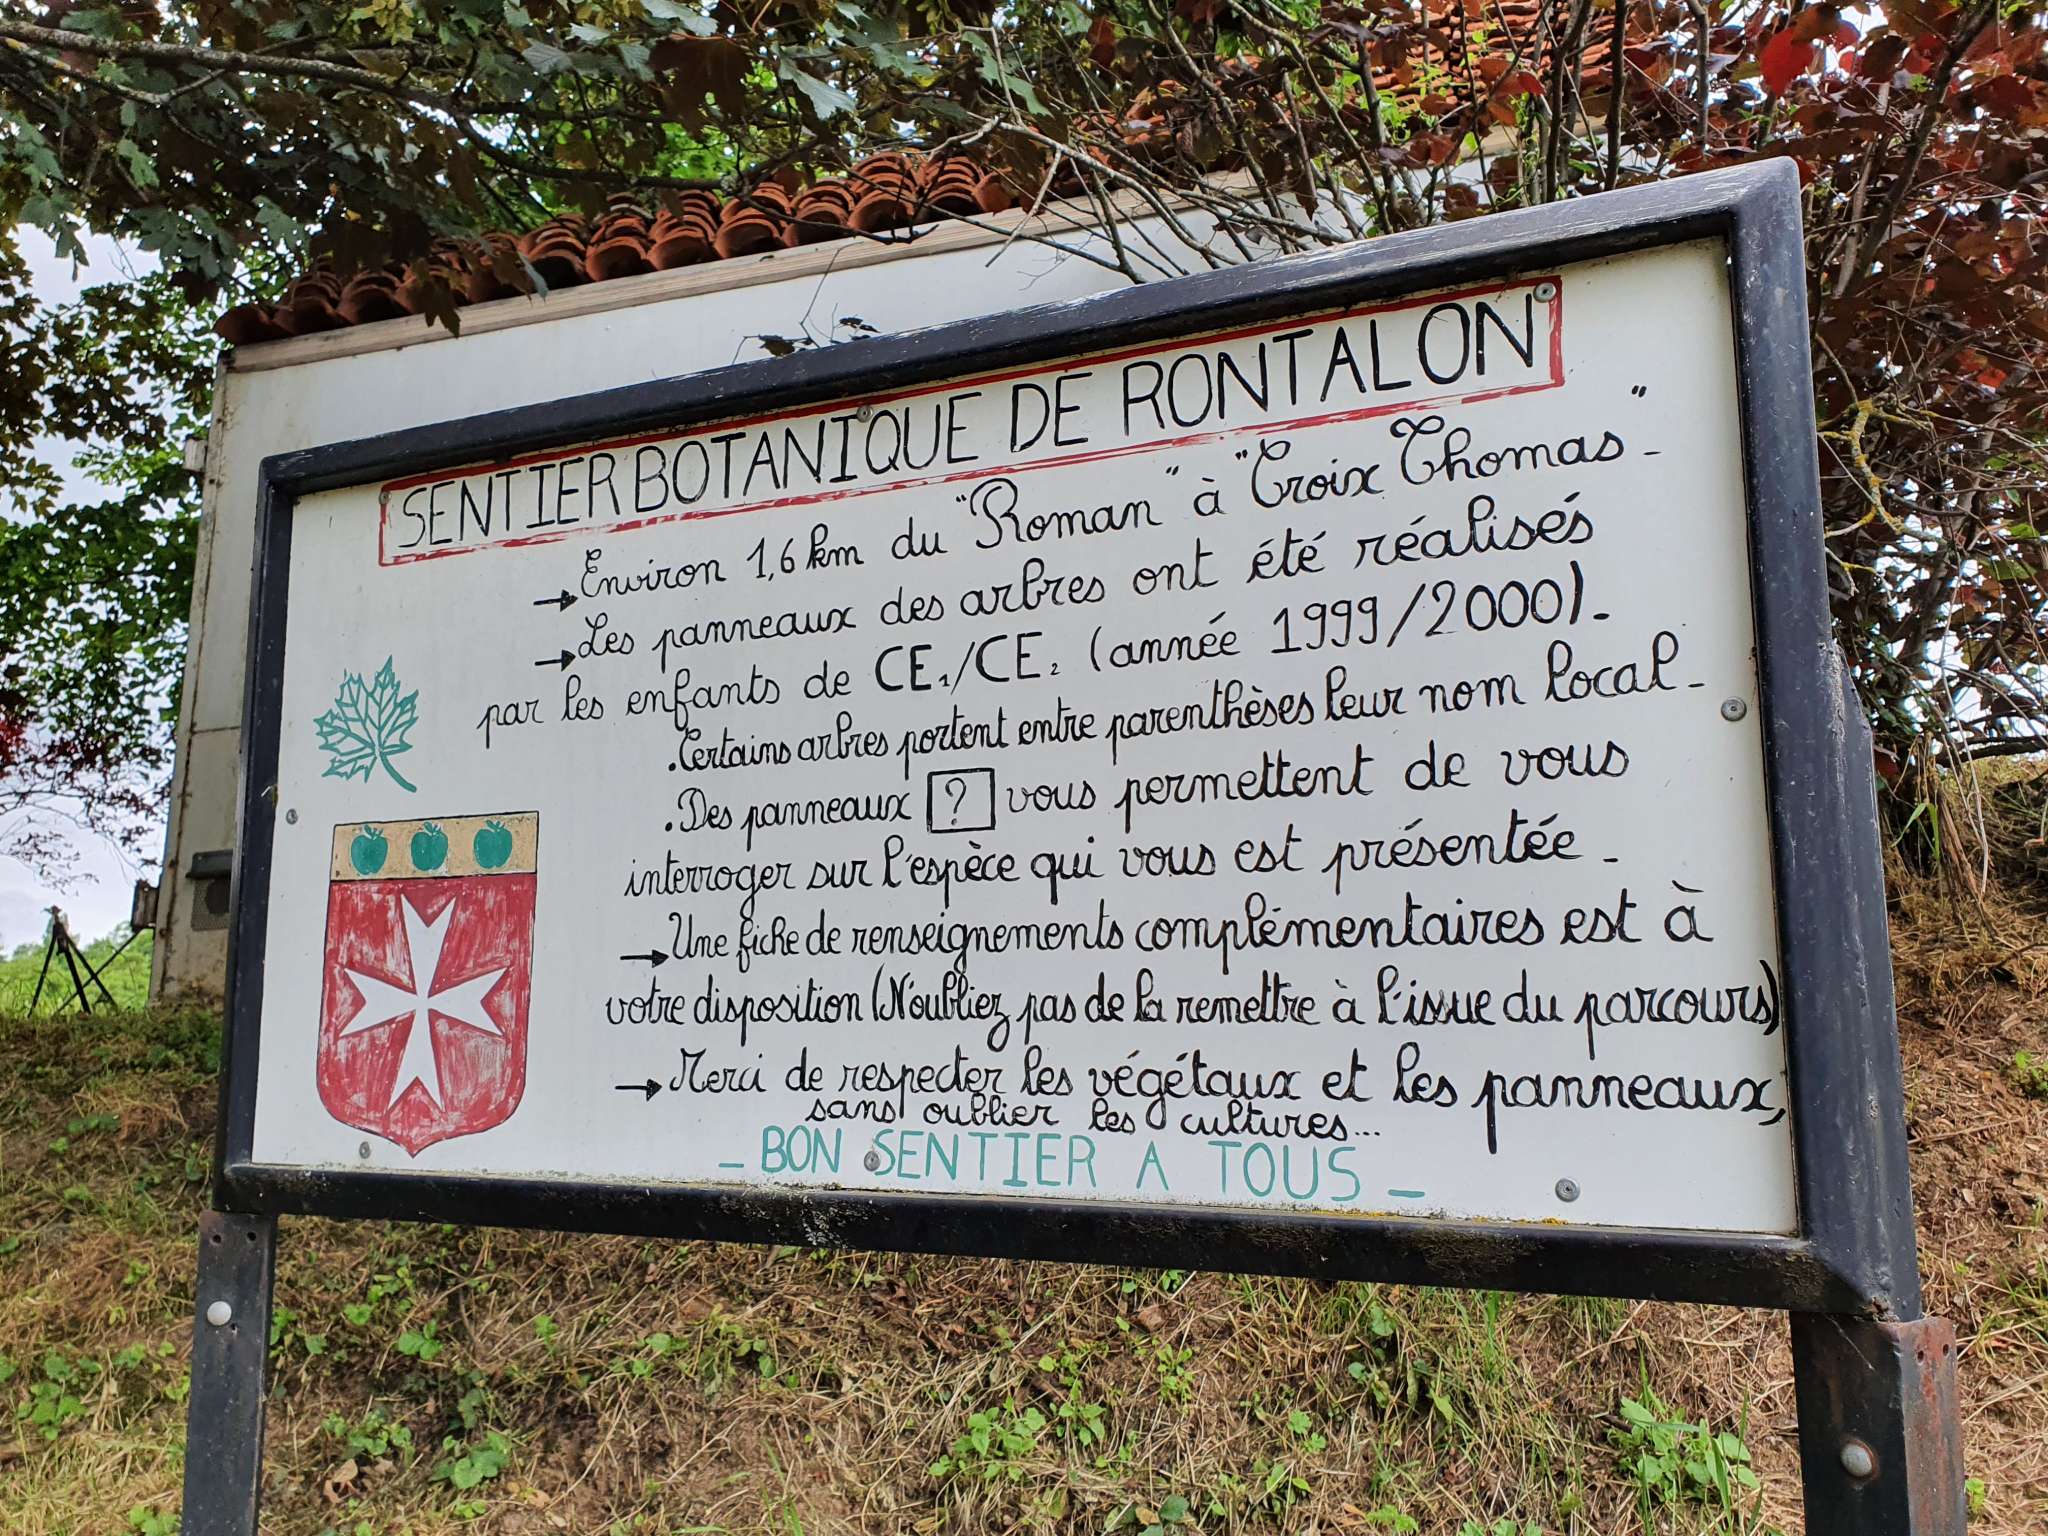 SENTIER BOTANIQUE DE RONTALON
→ Environ 1,6 km du "Roman" à "Croix Thomas" -
→ Les panneaux des arbres ont été réalisés
par les enfants de CE1/CE2 (année 1999/2000).
. Certains arbres portent entre parenthèses leur nom local -
. Des panneaux ? vous permettent de vous
interroger sur l'espèce qui vous est présentée -
→ Une fiche de renseignements complémentaires est à
votre disposition (N'oubliez pas de la remettre à l'issue du parcours)
→ Merci de respecter les végétaux et les panneaux,
sans oublier les cultures...
- BON SENTIER A TOUS -